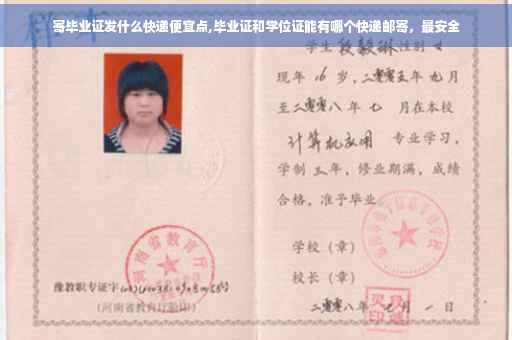 寄毕业证发什么快递便宜点,毕业证和学位证能有哪个快递邮寄，最安全
样本
学生 段毅琳 性别 女
现年 16 岁，二零零五年 九月
至二零零八年 七 月在本校
计算机应用 专业学习，
学制 三 年，修业期满，成绩
合格，准予毕业
学校（章）
校长（章）
二零零八年 七 月 一 日
河南省教育厅
豫教职专证字
(河南省教育厅验印)